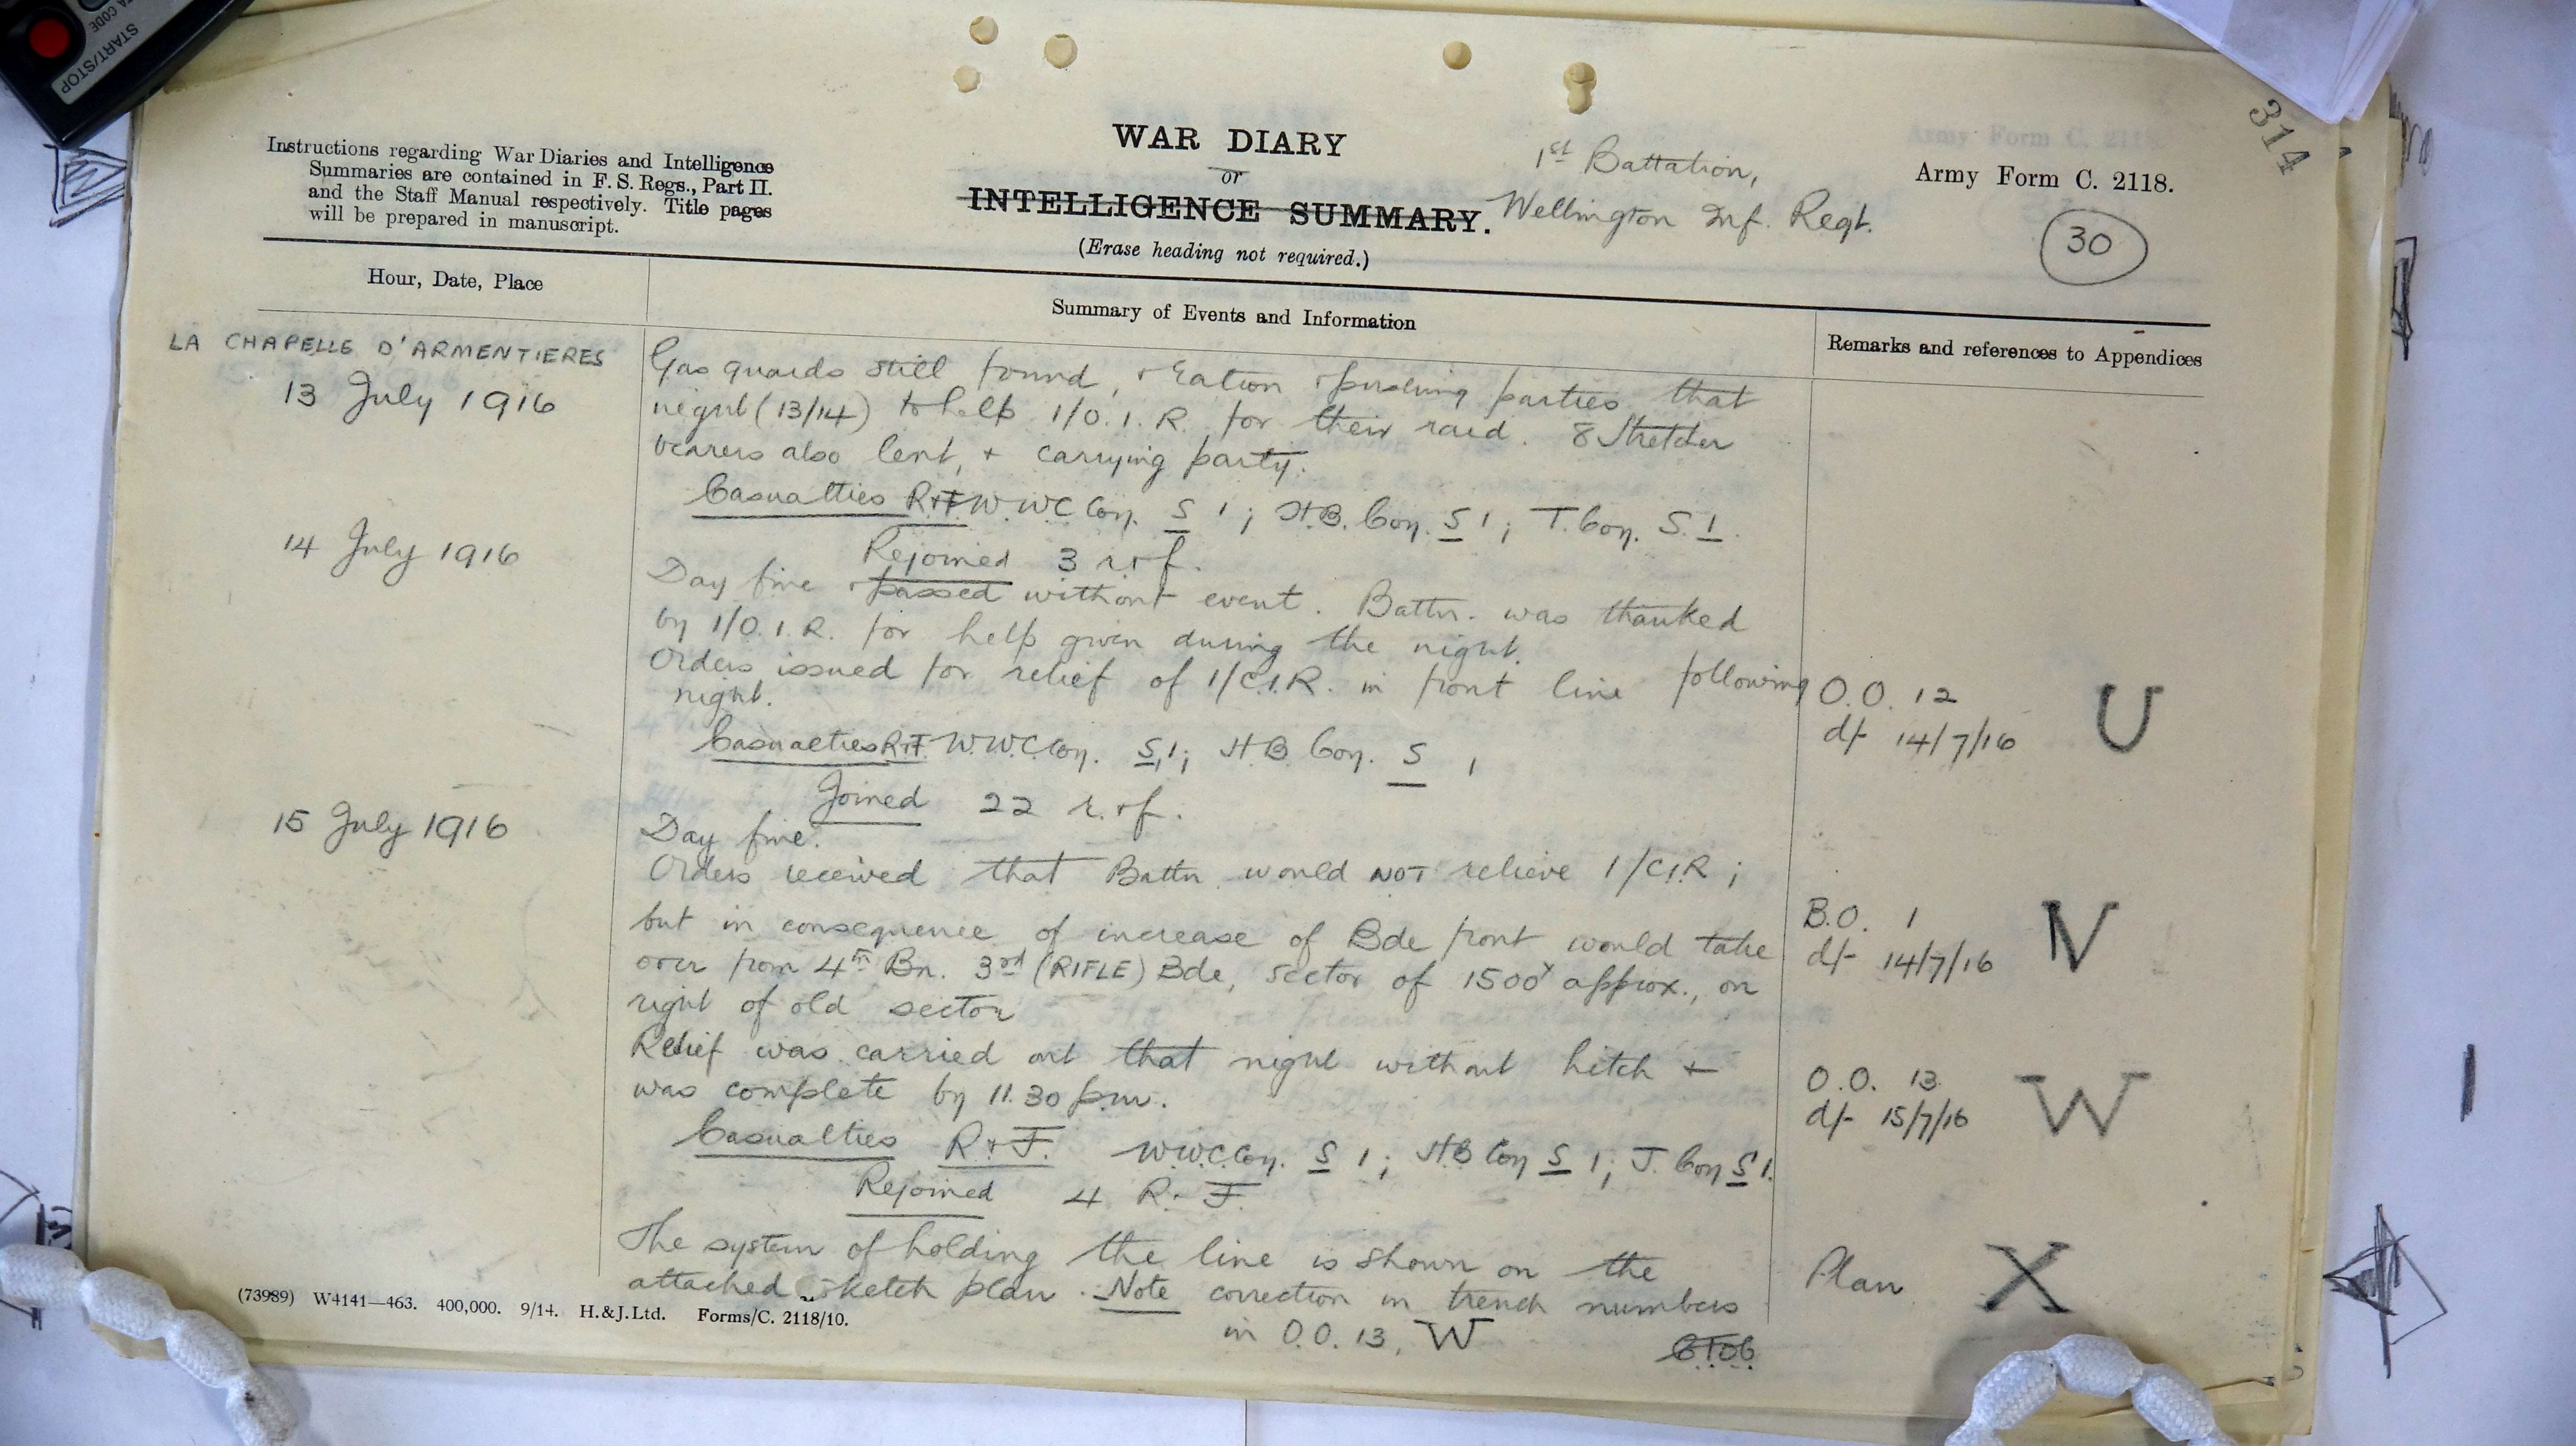 START/STOP
CODE
314
Instructions regarding War Diaries and Intelligence
Summaries are contained in F. S. Regs., Part II.
and the Staff Manual respectively. Title pages
will be prepared in manuscript.
WAR DIARY
or
INTELLIGENCE SUMMARY.
(Erase heading not required.)
1st Battalion,
Wellington Inf. Regt.
Army Form C. 2118.
30
Hour, Date, Place
Summary of Events and Information
Remarks and references to Appendices
LA CHAPELLE D'ARMENTIERES
13 July 1916
Gas guards still found, + ration + pushing parties that
night (13/14) to help 1/O.I.R. for their raid. 8 Stretcher
bearers also lent, + carrying party.
Casualties R+F W.WC Coy. S 1; H.B. Coy. S 1; T. Coy. S. 1.
Rejoined 3 r+f.
14 July 1916
Day fine + passed without event. Battn. was thanked
by 1/O.I.R. for help given during the night.
Orders issued for relief of 1/C.I.R. in front line following
night.
O.O. 12
d/- 14/7/16
U
Casualties R+F. W.WC Coy. S,1; H.B. Coy. S 1
Joined 22 r.+f.
15 July 1916
Day fine.
Orders received that Battn. would NOT relieve 1/C.I.R;
but in consequence of increase of Bde front would take
over from 4th Bn. 3rd (RIFLE) Bde, sector of 1500x approx., on
right of old sector
B.O. 1
d/- 14/7/16
V
Relief was carried out that night without hitch +
was complete by 11.30 p.m.
O.O. 13
d/- 15/7/16
W
Casualties R+F. W.W.C Coy. S 1; H.B Coy S 1; T. Coy S 1.
Rejoined 4 R. F.
The system of holding the line is shown on the
attached sketch plan. Note correction in trench numbers
in O.O. 13, W
Plan X
(73989) W4141—463. 400,000. 9/14. H.&J.Ltd. Forms/C. 2118/10.